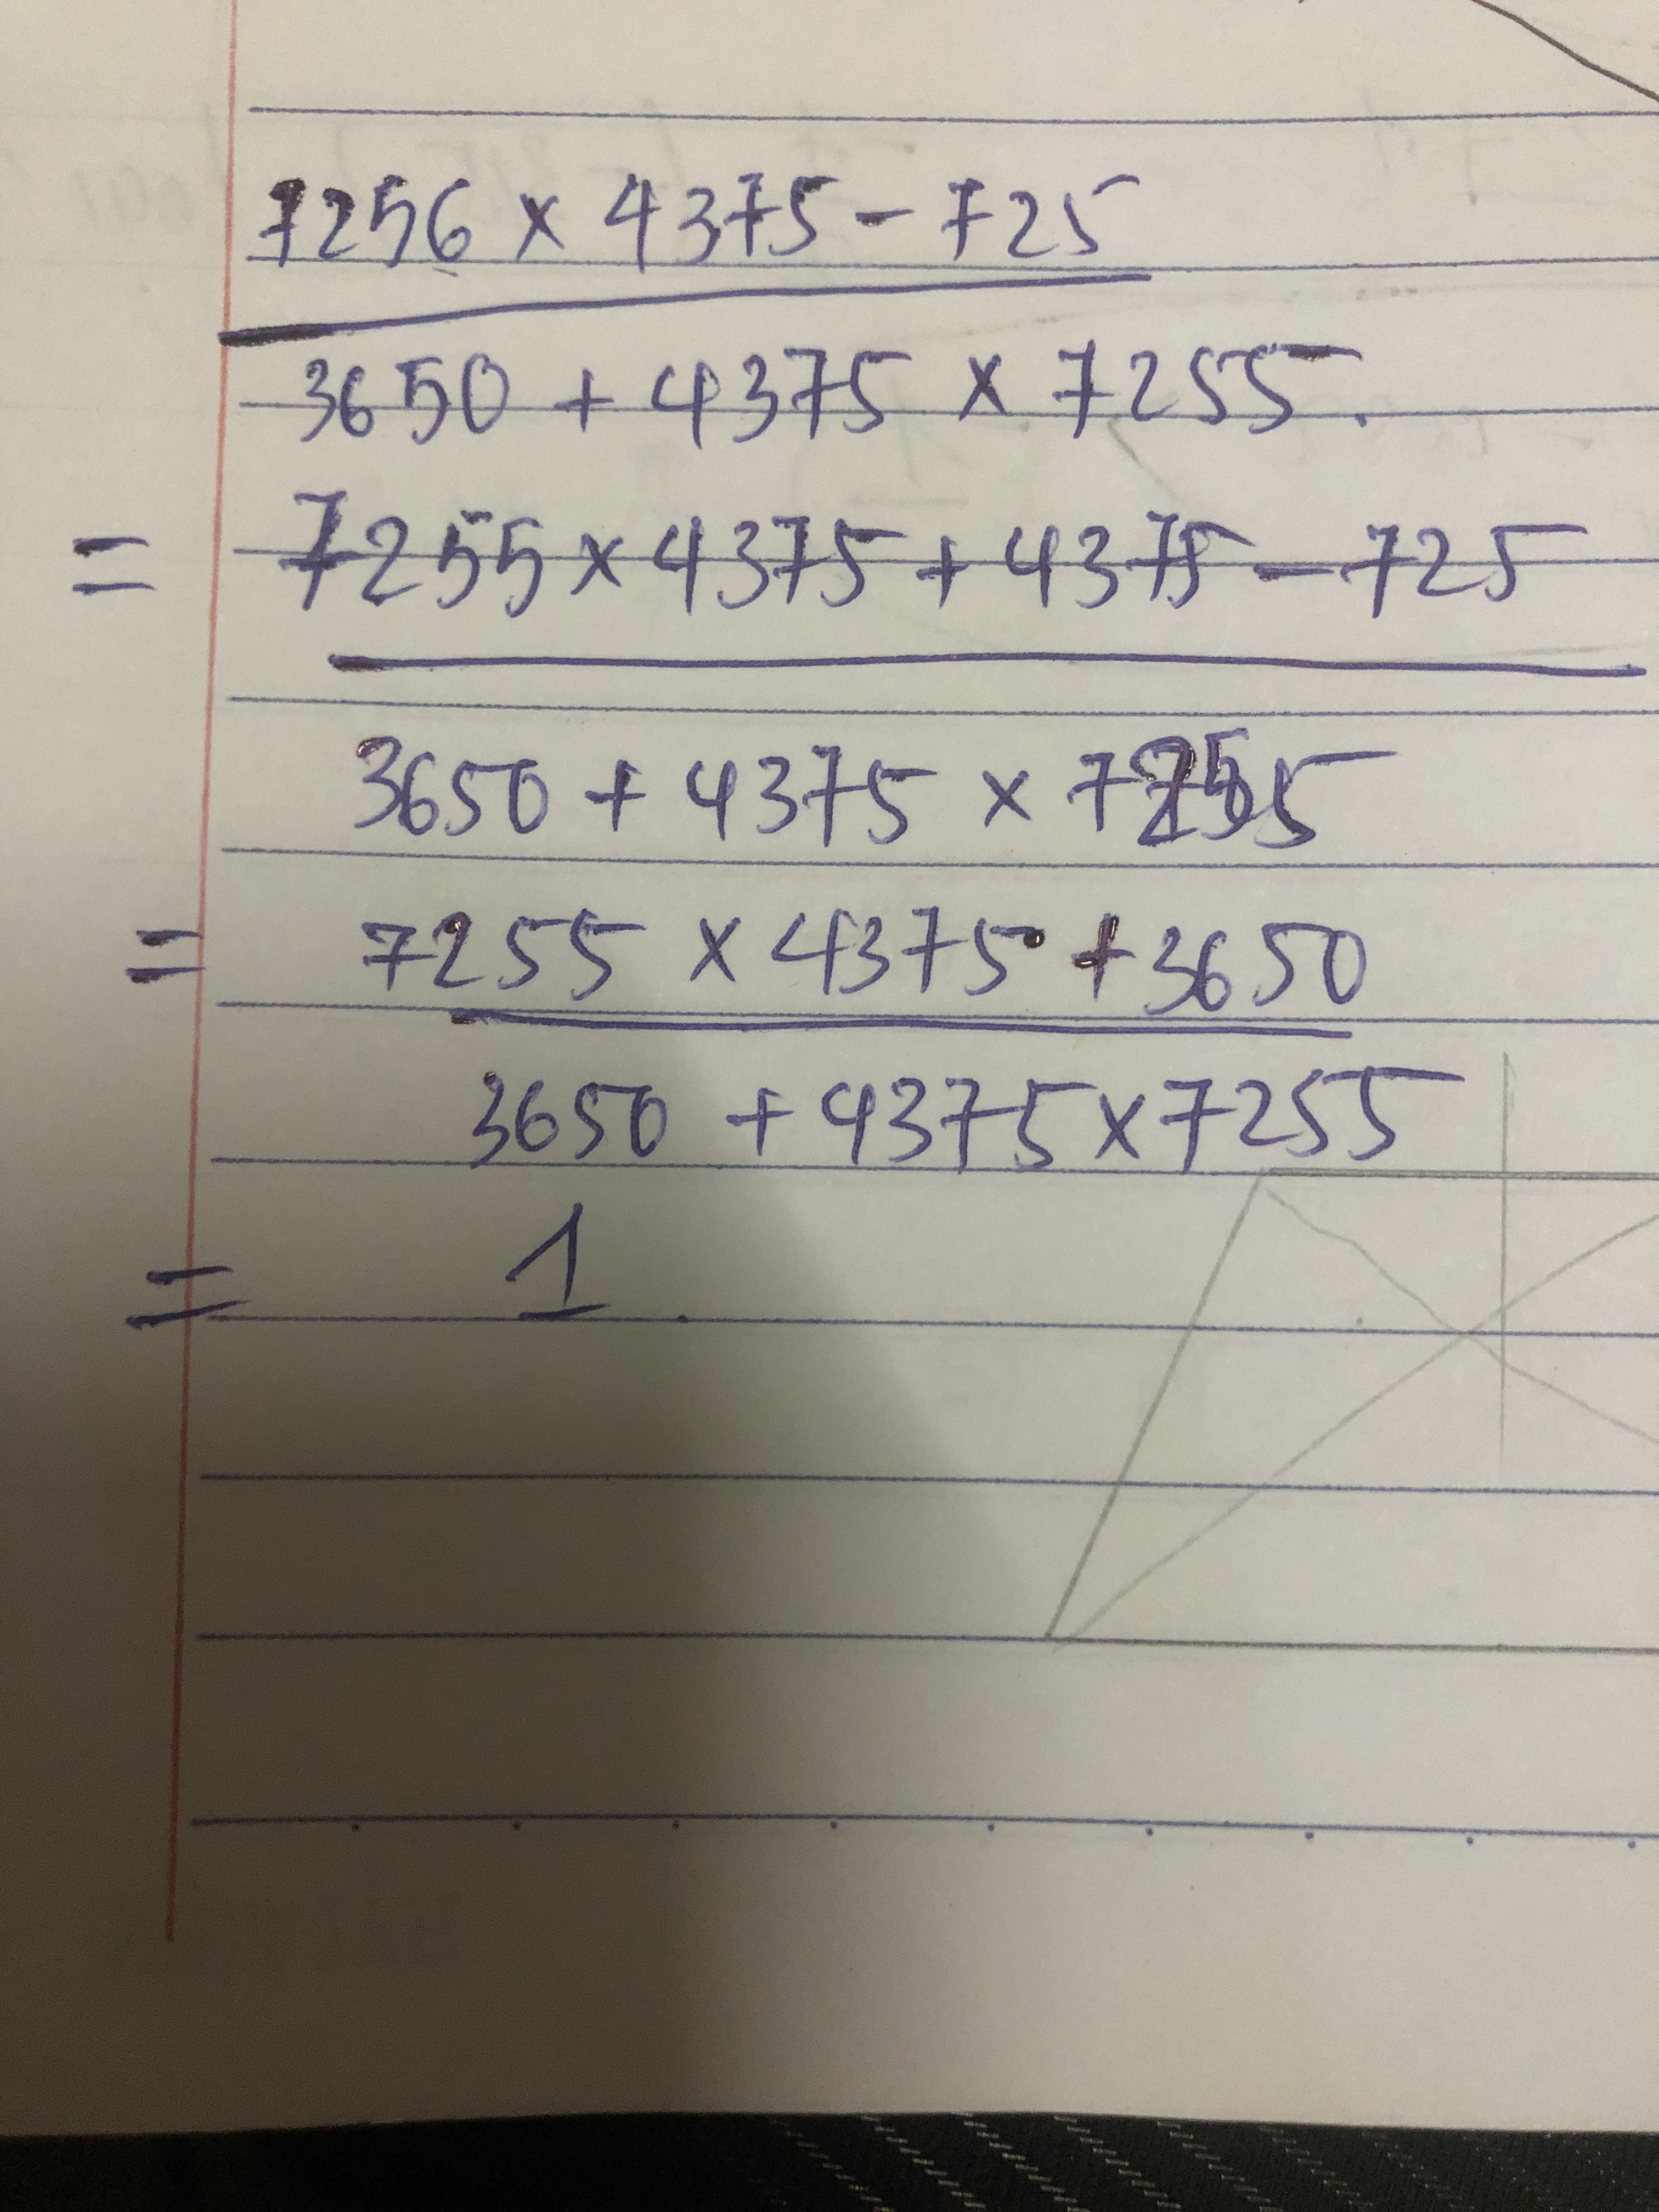 7256 x 4375 - 725
3650 + 4375 x 7255.
= 7255 x 4375 + 4375 - 725
3650 + 4375 x 7255
= 7255 x 4375 + 3650
3650 + 4375 x 7255
= 1